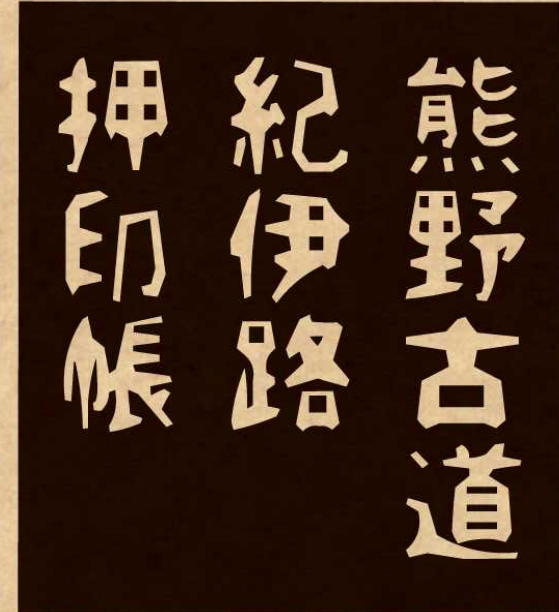 熊野古道
紀伊路
押印帳